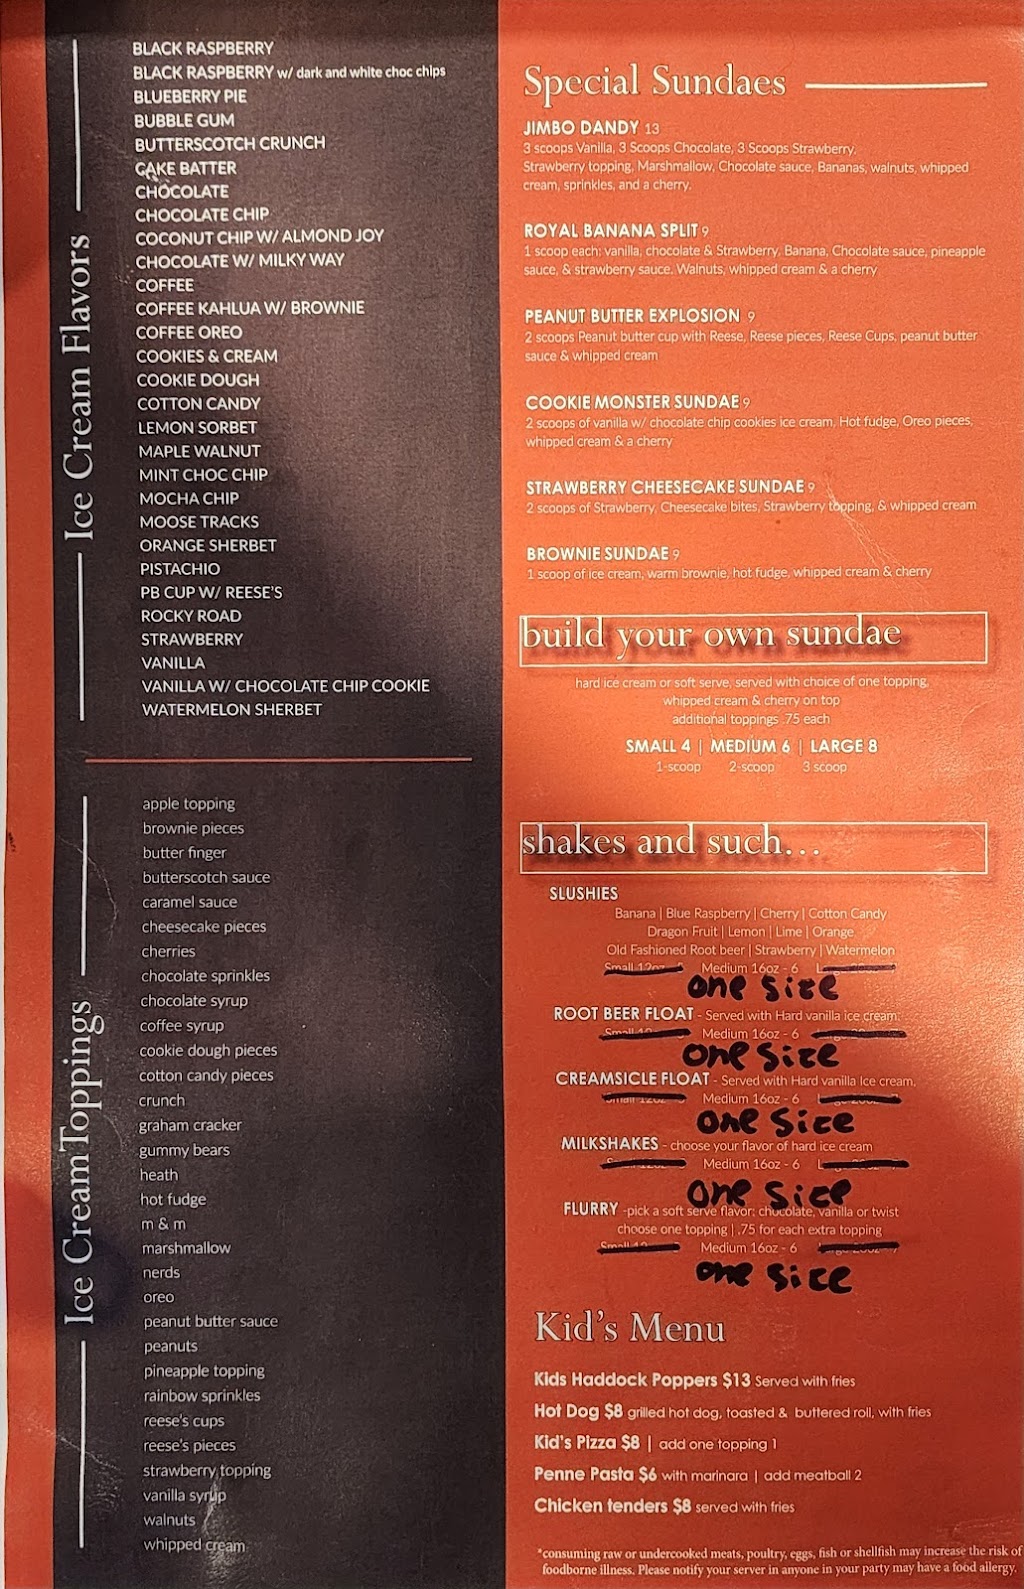 Ice Cream Flavors
BLACK RASPBERRY
BLACK RASPBERRY w/ dark and white choc chips
BLUEBERRY PIE
BUBBLE GUM
BUTTERSCOTCH CRUNCH
CAKE BATTER
CHOCOLATE
CHOCOLATE CHIP
COCONUT CHIP W/ ALMOND JOY
CHOCOLATE W/ MILKY WAY
COFFEE
COFFEE KAHLUA W/ BROWNIE
COFFEE OREO
COOKIES & CREAM
COOKIE DOUGH
COTTON CANDY
LEMON SORBET
MAPLE WALNUT
MINT CHOC CHIP
MOCHA CHIP
MOOSE TRACKS
ORANGE SHERBET
PISTACHIO
PB CUP W/ REESE'S
ROCKY ROAD
STRAWBERRY
VANILLA
VANILLA W/ CHOCOLATE CHIP COOKIE
WATERMELON SHERBET
Ice Cream Toppings
apple topping
brownie pieces
butter finger
butterscotch sauce
caramel sauce
cheesecake pieces
cherries
chocolate sprinkles
chocolate syrup
coffee syrup
cookie dough pieces
cotton candy pieces
crunch
graham cracker
gummy bears
heath
hot fudge
m & m
marshmallow
nerds
oreo
peanut butter sauce
peanuts
pineapple topping
rainbow sprinkles
reese's cups
reese's pieces
strawberry topping
vanilla syrup
walnuts
whipped cream
Special Sundaes
JIMBO DANDY 13
3 scoops Vanilla, 3 Scoops Chocolate, 3 Scoops Strawberry,
Strawberry topping, Marshmallow, Chocolate sauce, Bananas, walnuts, whipped
cream, sprinkles, and a cherry.
ROYAL BANANA SPLIT 9
1 scoop each: vanilla, chocolate & Strawberry, Banana, Chocolate sauce, pineapple
sauce, & strawberry sauce. Walnuts, whipped cream & a cherry
PEANUT BUTTER EXPLOSION 9
2 scoops Peanut butter cup with Reese, Reese pieces, Reese Cups, peanut butter
sauce & whipped cream
COOKIE MONSTER SUNDAE 9
2 scoops of vanilla w/ chocolate chip cookies ice cream, Hot fudge, Oreo pieces,
whipped cream & a cherry
STRAWBERRY CHEESECAKE SUNDAE 9
2 scoops of Strawberry, Cheesecake bites, Strawberry topping, & whipped cream
BROWNIE SUNDAE 9
1 scoop of ice cream, warm brownie, hot fudge, whipped cream & cherry
build your own sundae
hard ice cream or soft serve, served with choice of one topping,
whipped cream & cherry on top
additional toppings .75 each
SMALL 4 | MEDIUM 6 | LARGE 8
1-scoop 2-scoop 3 scoop
shakes and such...
SLUSHIES
Banana | Blue Raspberry | Cherry | Cotton Candy
Dragon Fruit | Lemon | Lime | Orange
Old Fashioned Root beer | Strawberry | Watermelon
Small 12oz Medium 16oz - 6
one size
ROOT BEER FLOAT - Served with Hard vanilla ice cream.
Medium 16oz - 6
one size
CREAMSICLE FLOAT - Served with Hard vanilla Ice cream.
Medium 16oz - 6
one size
MILKSHAKES - choose your flavor of hard ice cream
Medium 16oz - 6
one size
FLURRY -pick a soft serve flavor: chocolate, vanilla or twist
choose one topping | .75 for each extra topping
Medium 16oz - 6
one size
Kid's Menu
Kids Haddock Poppers $13 Served with fries
Hot Dog $8 grilled hot dog, toasted & buttered roll, with fries
Kid's Pizza $8 | add one topping 1
Penne Pasta $6 with marinara | add meatball 2
Chicken tenders $8 served with fries
*consuming raw or undercooked meats, poultry, eggs, fish or shellfish may increase the risk of
foodborne illness. Please notify your server in anyone in your party may have a food allergy.